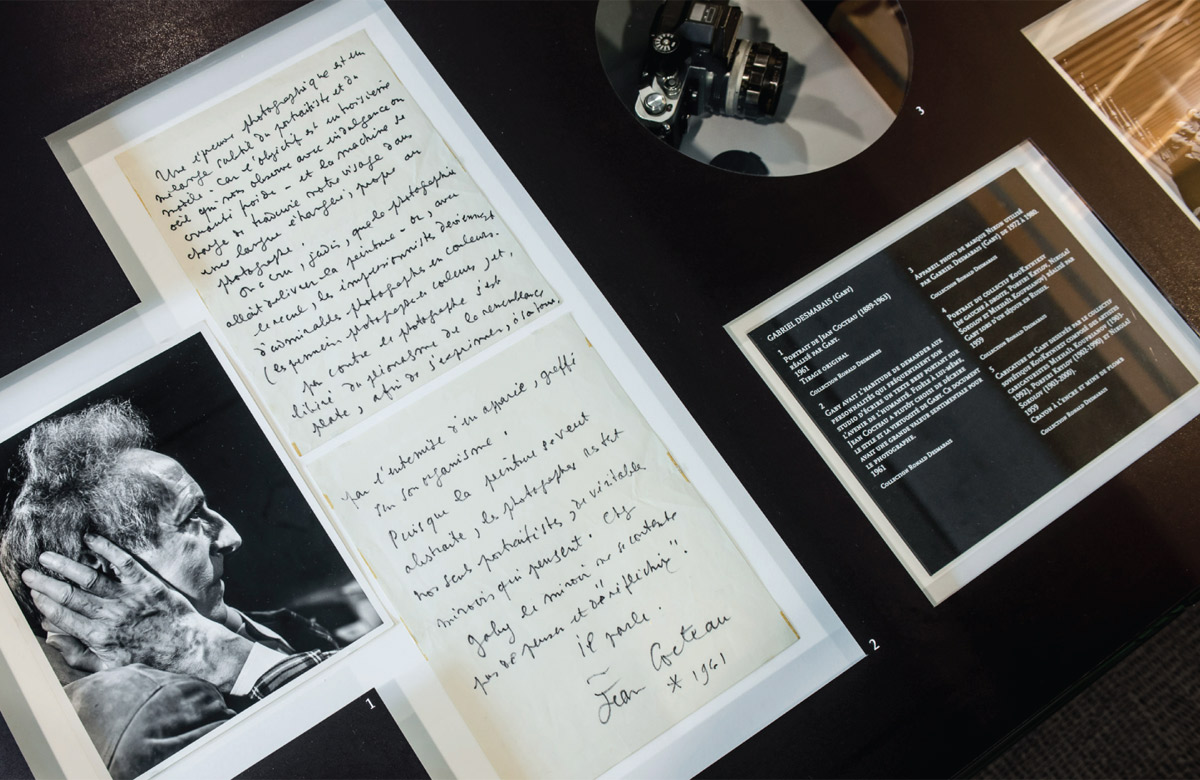 Une épreuve photographique est un
mélange subtil du portraitiste et du
modèle - car l'objectif est un troisième
œil qui nous observe avec indulgence ou
cruauté froide - et la machine se
charge de traduire notre visage dans
une langue étrangère, propre au
photographe.
On a cru, jadis, que la photographie
allait achever la peinture - or, avec
le recul les impressionnistes deviennent
d'admirables photographes en couleurs.
(les premiers photographes couleurs) et,
par contre le photographe s'est
libéré du pléonasme de la ressemblance
plate, afin de s'exprimer, à la fois
par l'entremise d'un appareil, greffé
sur son organisme.
Puisque la peinture se veut
abstraite, les photographes restent
nos seuls portraitistes, de véritables
miroirs qui pensent. Chez
Gaby le miroir ne se contente
pas de penser et de "réfléchir".
il parle.
Jean Cocteau
* 1961
1
2
3
GABRIEL DESMARAIS (GABY)
1
PORTRAIT DE JEAN COCTEAU (1889-1963)
RÉALISÉ PAR GABY.
1961
TIRAGE ORIGINAL
COLLECTION RONALD DESMARAIS
2
GABY AVAIT L'HABITUDE DE DEMANDER AUX
PERSONNALITÉS QUI FRÉQUENTAIENT SON
STUDIO D'ÉCRIRE UN TEXTE BREF PORTANT SUR
L'AVENIR DE L'HUMANITÉ. FIDÈLE À LUI-MÊME,
JEAN COCTEAU A PLUTÔT CHOISI DE DÉCRIRE
LE STYLE ET LA VIRTUOSITÉ DE GABY. CE DOCUMENT
AVAIT UNE GRANDE VALEUR SENTIMENTALE POUR
LE PHOTOGRAPHE.
1961
COLLECTION RONALD DESMARAIS
3
APPAREIL PHOTO DE MARQUE NIKON UTILISÉ
PAR GABRIEL DESMARAIS (GABY) DE 1972 À 1980.
COLLECTION RONALD DESMARAIS
4
PORTRAIT DU COLLECTIF KOUKRYNIKSY
(DE GAUCHE À DROITE, PORFIRI KRYLOV, NIKOLAÏ
SOKOLOV ET MIKHAÏL KOUPRIANOV) RÉALISÉ PAR
GABY LORS D'UN SÉJOUR EN RUSSIE.
1959
COLLECTION RONALD DESMARAIS
5
CARICATURE DE GABY DESSINÉE PAR LE COLLECTIF
SOVIÉTIQUE KOUKRYNIKSY COMPOSÉ DES ARTISTES
CARICATURISTES MIKHAÏL KOUPRIANOV (1903-
1992), PORFIRI KRYLOV (1902-1990) ET NIKOLAÏ
SOKOLOV (1903-2000).
1959
CRAYON À L'ENCRE ET MINE DE PLOMB
COLLECTION RONALD DESMARAIS